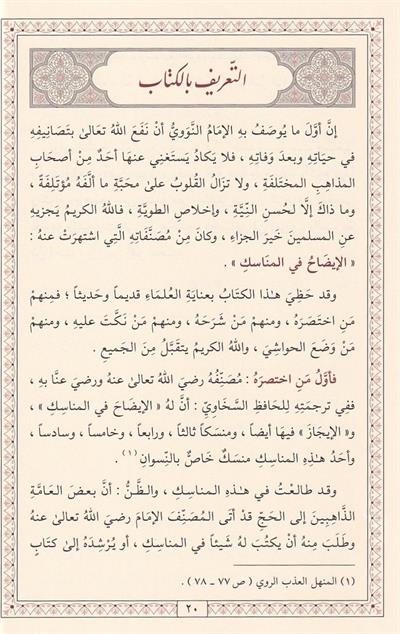 التّعريف بالكتاب
إنَّ أوَّلَ ما يُوصَفُ بهِ الإمامُ النَّوَويُّ أنْ نَفَعَ اللهُ تعالىٰ بتَصَانِيفِهِ
في حيَاتِهِ وبعدَ وَفاتِهِ ، فلا يَكادُ يَستَغنِي عنهَا أحَدٌ مِنْ أصحَابِ
المذاهبِ المختَلفَةِ ، ولا تزَالُ القُلوبُ علىٰ محَبَّةِ ما ألَّفَهُ مُؤتَلِفَةً ،
وما ذاكَ إلَّا لحُسنِ النِّيَّةِ ، وإخلاصِ الطويَّةِ ، فاللهُ الكريمُ يَجزيهِ
عنِ المسلمينَ خَيرَ الجزاءِ ، وكانَ مِنْ مُصَنَّفاتِهِ الَّتِي اشتهرَتْ عنهُ :
« الإيضَاحُ في المنَاسكِ » .
وقد حَظِيَ هـٰذا الكتَابُ بعنايةِ العُلمَاءِ قديماً وحَديثاً ؛ فمِنهمْ
مَنِ اختصَرَهُ ، ومنهمْ مَنْ شَرَحَهُ ، ومنهمْ مَنْ نَكَّتَ عليهِ ، ومنهمْ
مَنْ وَضَعَ الحواشِيَ ، واللهُ الكريمُ يتقَبَّلُ مِنَ الجَميعِ .
فأوَّلُ مَنِ اختصرَهُ : مُصَنِّفُهُ رضيَ اللهُ تعالىٰ عنهُ ورضيَ عنَّا بهِ ،
ففِي ترجمَتِهِ لِلحَافِظِ السَّخَاويِّ : أنَّ لهُ « الإيضَاحَ في المناسِكِ » ،
و« الإيْجَازَ » فيهَا أيضاً ، ومنسَكاً ثالثاً ، ورابعاً ، وخامساً ، وسادساً ،
وأحَدُ هـٰذِهِ المناسِكِ منسَكٌ خَاصٌّ بالنِّسوانِ (١) .
وقد طالعْتُ في هـٰذهِ المناسِكِ ، والظَّنُّ : أنَّ بعضَ العَامَّةِ
الذَّاهبِينَ إلى الحَجِّ قدْ أتَى المُصَنِّفَ الإمَامَ رضيَ اللهُ تعالىٰ عنهُ
وطَلَبَ مِنهُ أنْ يكتُبَ لهُ شَيئاً في المناسِكِ ، أو يُرْشِدَهُ إلىٰ كتَابٍ
(١) المنهل العذب الروي ( ص ٧٧ ـ ٧٨ ) .
٢٠